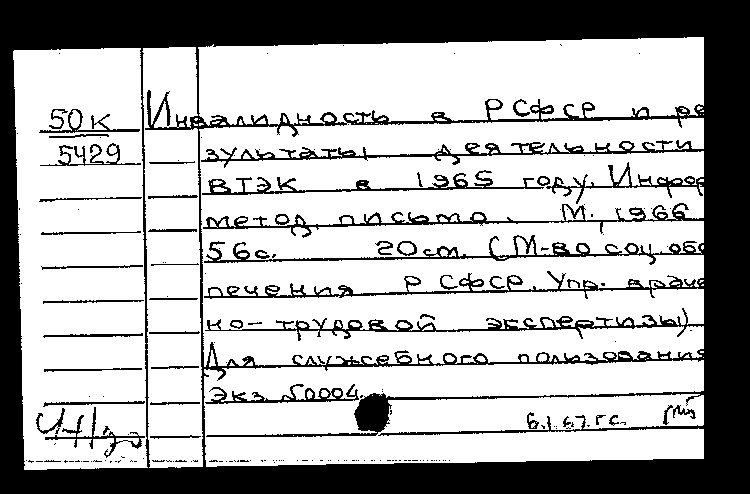 50к
5429
Инвалидность в РСФСР и ре
зультаты деятельности
ВТЭК в 1965 году. Инфор
метод. письмо. М., 1966
56с. 20см. (М-во соц. обе
печения РСФСР. Упр. враче
но-трудовой экспертизы)
Для служебного пользования
Экз. №0004.
6.1.67. гс.